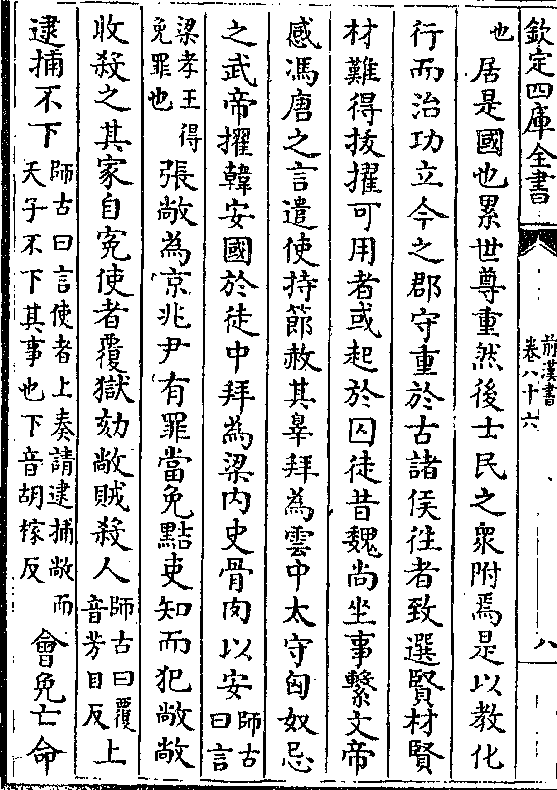 欽定四庫全書
前漢書
卷八十六
八
也居是國也累世尊重然後士民之衆附焉是以教化
行而治功立今之郡守重於古諸侯往者致選賢材賢
材難得拔擢可用者或起於囚徒昔魏尚坐事繫文帝
感馮唐之言遣使持節赦其辠拜為雲中太守匈奴忌
之武帝擢韓安國於徒中拜為梁内史骨肉以安師古曰言
梁孝王得免罪也張敞為京兆尹有罪當免黠吏知而犯敞敞
收殺之其家自冤使者覆獄劾敞賊殺人師古曰覆音芳目反上
逮捕不下師古曰言使者上奏請逮捕敞而天子不下其事也下音胡稼反會免亡命